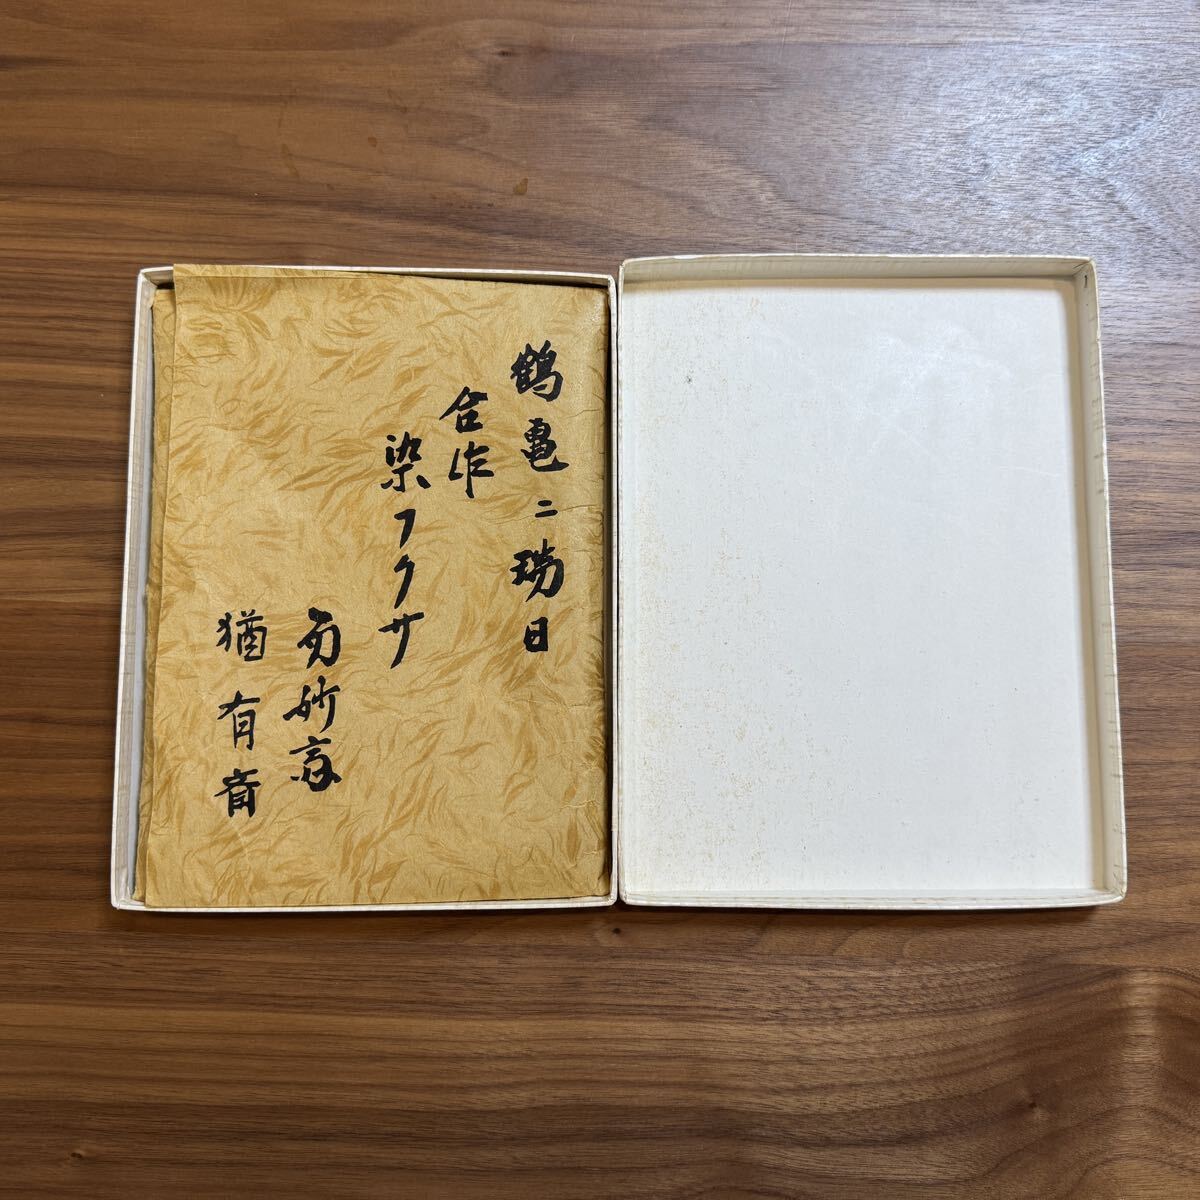 鶴亀ニ瑞日
合作
染フクサ
而妙斎
猶有斎